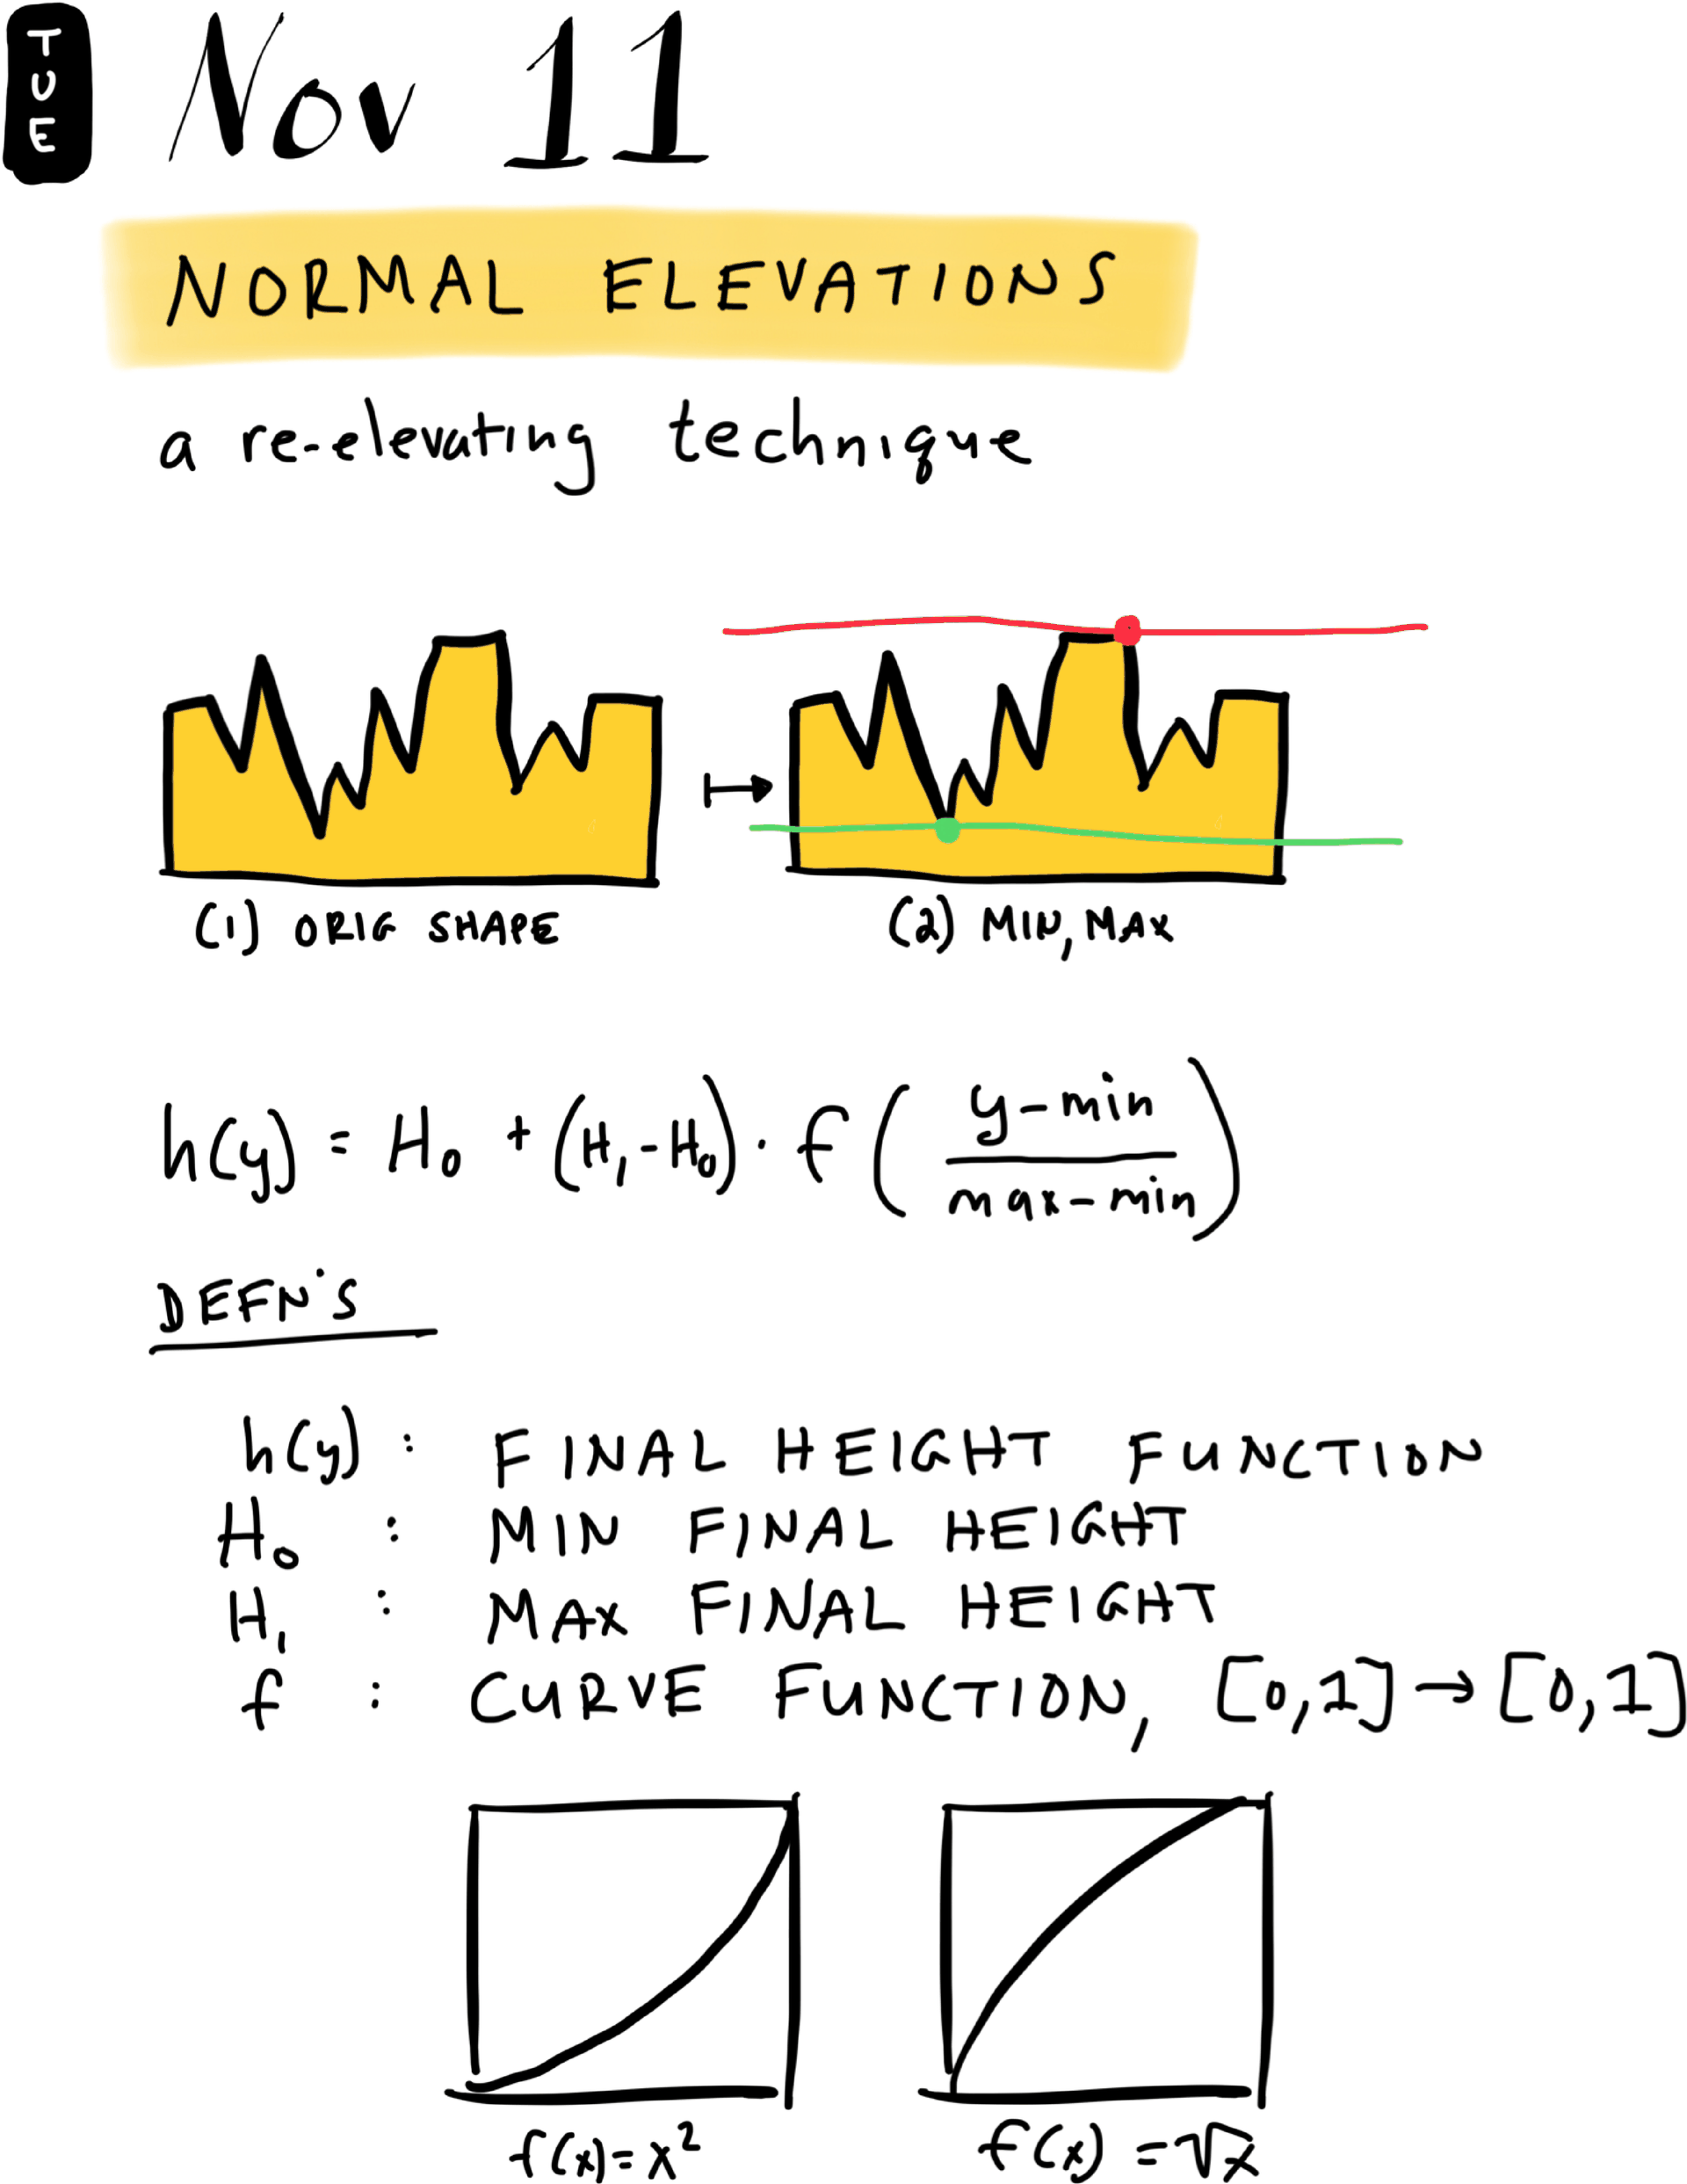 TUE
Nov 11
NORMAL ELEVATIONS
a re-elevating technique
(1) ORIG SHAPE
(2) MIN, MAX
h(y) = H₀ + (H₁-H₀) · f( (y-min)/(max-min) )
DEFN'S
h(y) : FINAL HEIGHT FUNCTION
H₀ : MIN FINAL HEIGHT
H₁ : MAX FINAL HEIGHT
f : CURVE FUNCTION, [0,1] → [0,1]
f(x)=x²
f(x)=√x